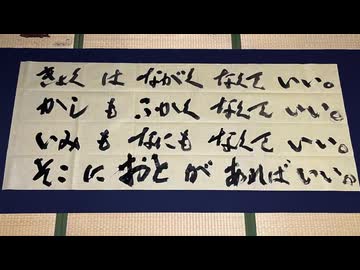 きょくは ながく なくて いい。
かしも ふかく なくて いい。
いみも なにも なくて いい。
そこに おとが あれば いい。